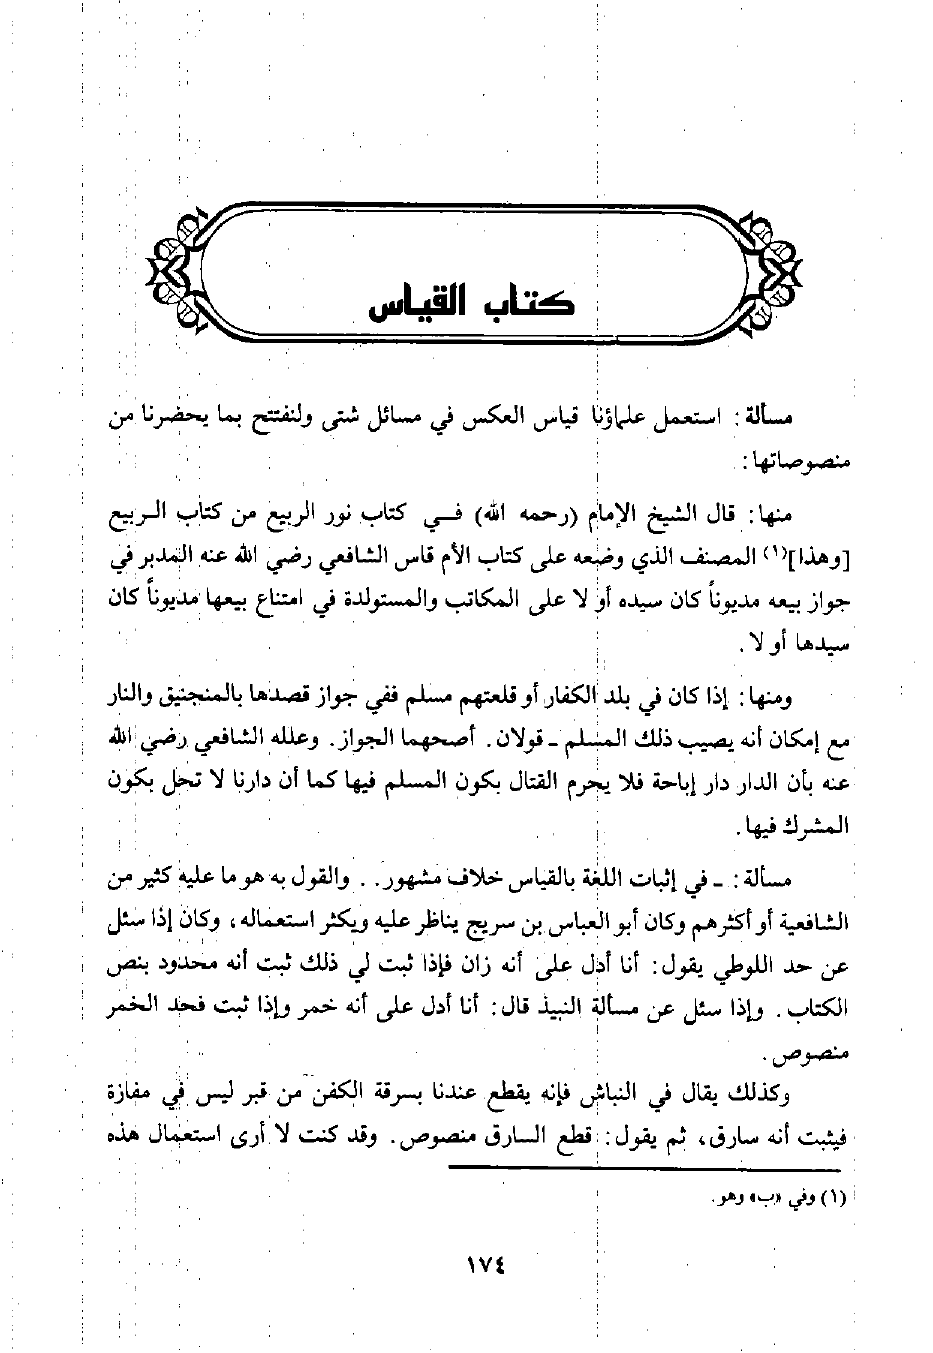 كتاب القياس
مسألة : استعمل علماؤنا قياس العكس في مسائل شتى ولنفتتح بما يحضرنا من
منصوصاتها :
منها : قال الشيخ الإمام (رحمه الله) فـــي كتاب نور الربيع من كتاب الـربيع
[وهذا](١) المصنف الذي وضعه على كتاب الأم قاس الشافعي رضي الله عنه المدبر في
جواز بيعه مديوناً كان سيده أو لا على المكاتب والمستولدة في امتناع بيعها مديوناً كان
سيدها أو لا .
ومنها : إذا كان في بلد الكفار أو قلعتهم مسلم ففي جواز قصدها بالمنجنيق والنار
مع إمكان أنه يصيب ذلك المسلم ـ قولان . أصحهما الجواز . وعلله الشافعي رضي الله
عنه بأن الدار دار إباحة فلا يحرم القتال بكون المسلم فيها كما أن دارنا لا تحل بكون
المشرك فيها .
مسألة : ـ في إثبات اللغة بالقياس خلاف مشهور . . والقول به هو ما عليه كثير من
الشافعية أو أكثرهم وكان أبو العباس بن سريج يناظر عليه ويكثر استعماله ، وكان إذا سئل
عن حد اللوطي يقول : أنا أدل على أنه زان فإذا ثبت لي ذلك ثبت أنه محدود بنص
الكتاب . وإذا سئل عن مسألة النبيذ قال : أنا أدل على أنه خمر وإذا ثبت فحد الخمر
منصوص .
وكذلك يقال في النباش فإنه يقطع عندنا بسرقة الكفن من قبر ليس في مفازة
فيثبت أنه سارق ، ثم يقول : قطع السارق منصوص . وقد كنت لا أرى استعمال هذه
(١) وفي «ب» وهو .
١٧٤